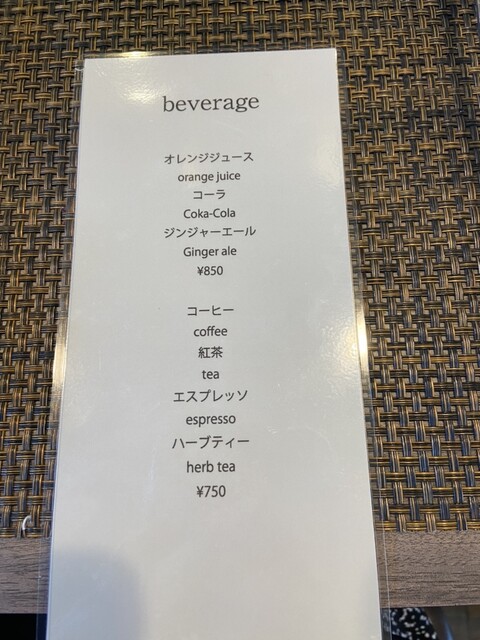 beverage
オレンジジュース
orange juice
コーラ
Coka-Cola
ジンジャーエール
Ginger ale
¥850
コーヒー
coffee
紅茶
tea
エスプレッソ
espresso
ハーブティー
herb tea
¥750